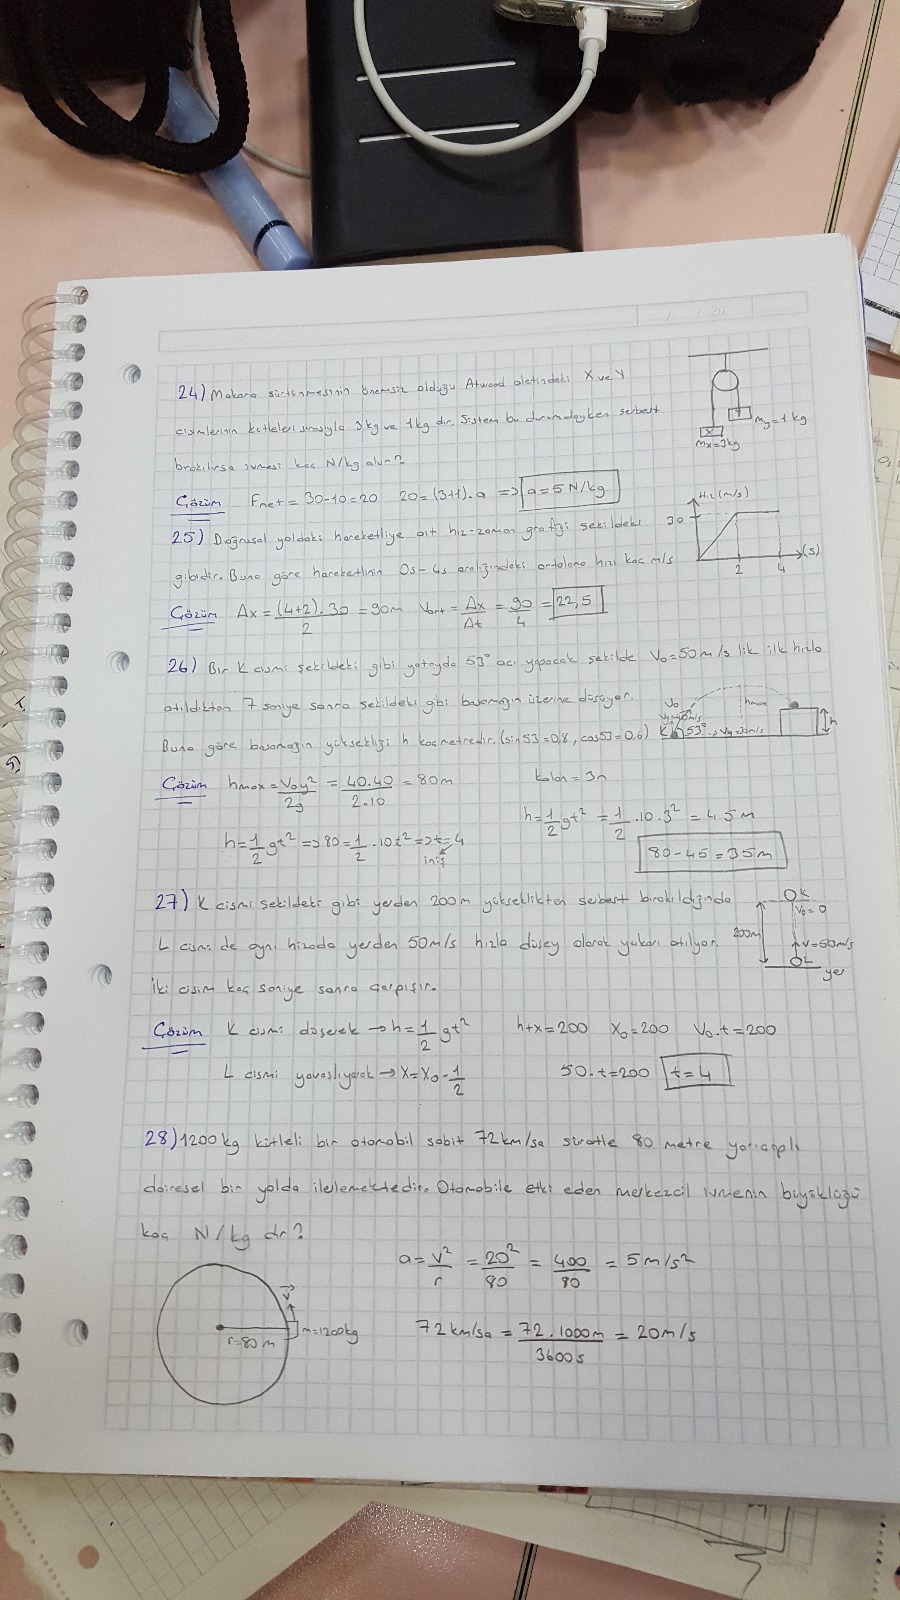 24) Makara sürtünmesinin önemsiz olduğu Atwood aletindeki X ve Y
cisimlerinin kütleleri sırasıyla 3kg ve 1kg dır. Sistem bu durumdayken serbest
bırakılırsa ivmesi kaç N/kg olur?
X
Y
my=1 kg
mx=3kg
Çözüm Fnet = 30-10=20 20=(3+1).a => a=5 N/kg
25) Doğrusal yoldaki hareketliye ait hız-zaman grafiği şekildeki
gibidir. Buna göre hareketlinin 0s-4s aralığındaki ortalama hızı kaç m/s
Hız(m/s)
30
2 4 (s)
Çözüm Δx = (4+2).30/2 = 90m Vort = Δx/Δt = 90/4 = 22,5
26) Bir K cismi şekildeki gibi yatayda 53° açı yapacak şekilde V₀=50m/s lik ilk hızla
atıldıktan 7 saniye sonra şekildeki gibi basamağın üzerine düşüyor.
Buna göre basamağın yüksekliği h kaç metredir. (sin53=0,8, cos53=0,6)
V₀
hmax
K 53°
h
Çözüm hmax = V₀y²/2g = 40.40/2.10 = 80m kalan = 3n
h=1/2gt² => 80=1/2.10t² => t=4
iniş
h=1/2gt² = 1/2.10.3² = 45m
80-45=35m
27) K cismi şekildeki gibi yerden 200m yükseklikten serbest bırakıldığında
L cismi de aynı hizada yerden 50m/s hızla düşey olarak yukarı atılıyor.
İki cisim kaç saniye sonra çarpışır.
K
V₀=0
200m
V=50m/s
L
yer
Çözüm K cismi düşerek → h=1/2gt² h+x=200 X₀=200 V₀.t=200
L cismi yavaşlıyarak → X=X₀-1/2 50.t=200 t=4
28) 1200kg kütleli bir otomobil sabit 72km/sa süratle 80 metre yarıçaplı
dairesel bir yolda ilerlemektedir. Otomobile etki eden merkezcil ivmenin büyüklüğü
kaç N/kg dır?
a=V²/r = 20²/80 = 400/80 = 5m/s²
V
m=1200kg
r=80m
72km/sa = 72.1000m/3600s = 20m/s